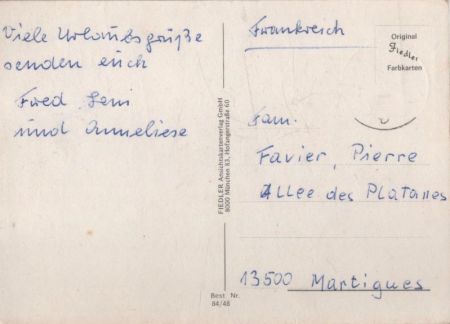 Viele Urlaubsgrüße
senden euch
Fred, Leni
und Anneliese
FIEDLER Ansichtskartenverlag GmbH
8000 München 83, Hofangerstraße 60
Best. Nr.
84/48
Frankreich
Original
Fiedler
Farbkarten
Fam.
Favier, Pierre
Allee des Platanes
13500 Martigues